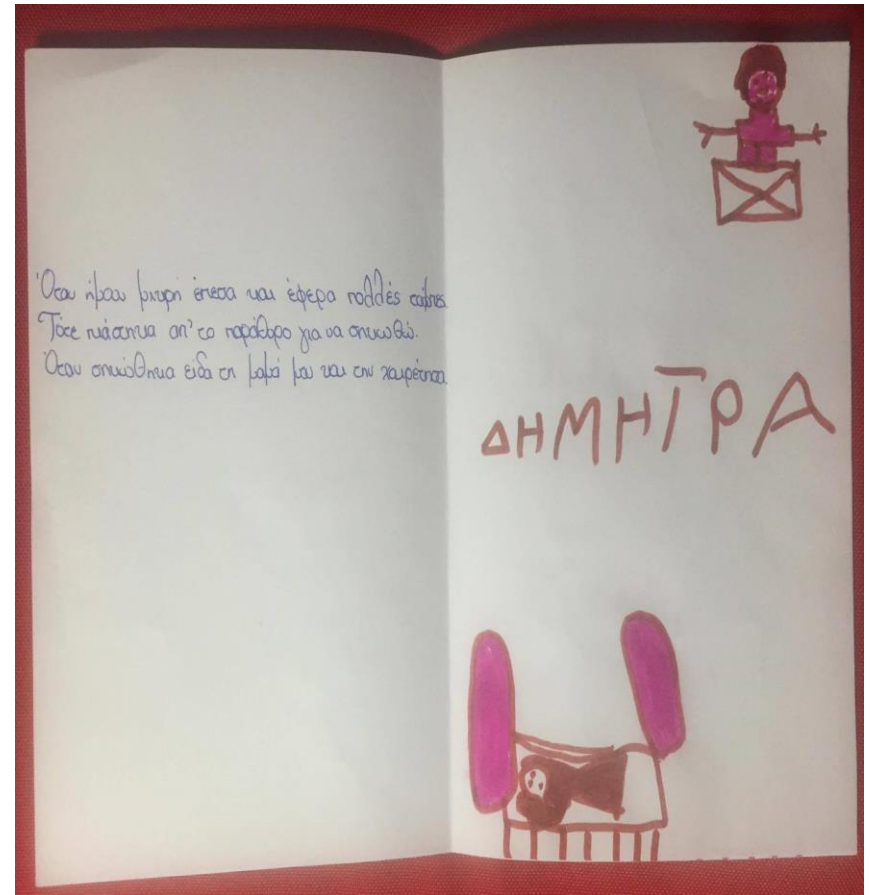 Όταν ήμουν μικρή έπεσα και έφερα πολλές τούμπες.
Τότε πιάστηκα απ' το παράθυρο για να σηκωθώ.
Όταν σηκώθηκα είδα τη μαμά μου και την χαιρέτησα.
ΔΗΜΗΤΡΑ